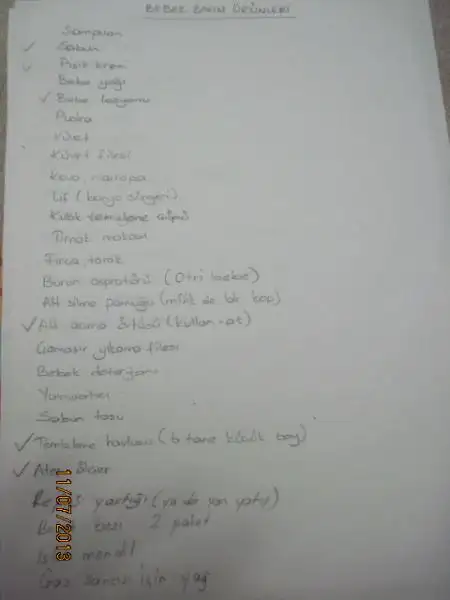 BEBEK BAKIM ÜRÜNLERİ
Şampuan
Sabun
Pişik krem
Bebe yağı
Bebe losyonu
Pudra
Küvet
Küvet filesi
Kova, maşrapa
Lif (banyo süngeri)
Kulak temizleme çubuğu
Tırnak makası
Fırça, tarak
Burun aspiratörü (Otri bebe)
Alt silme pamuğu (minik de bir kap)
Alt açma örtüsü (kullan-at)
Çamaşır yıkama filesi
Bebek deterjanı
Yumuşatıcı
Sabun tası
Temizleme havlusu (6 tane küçük boy)
Ateş ölçer
yastığı (ya da yan yatış)
bezi 2 paket
mendil
Gaz sancısı için yağ
11/07/2013